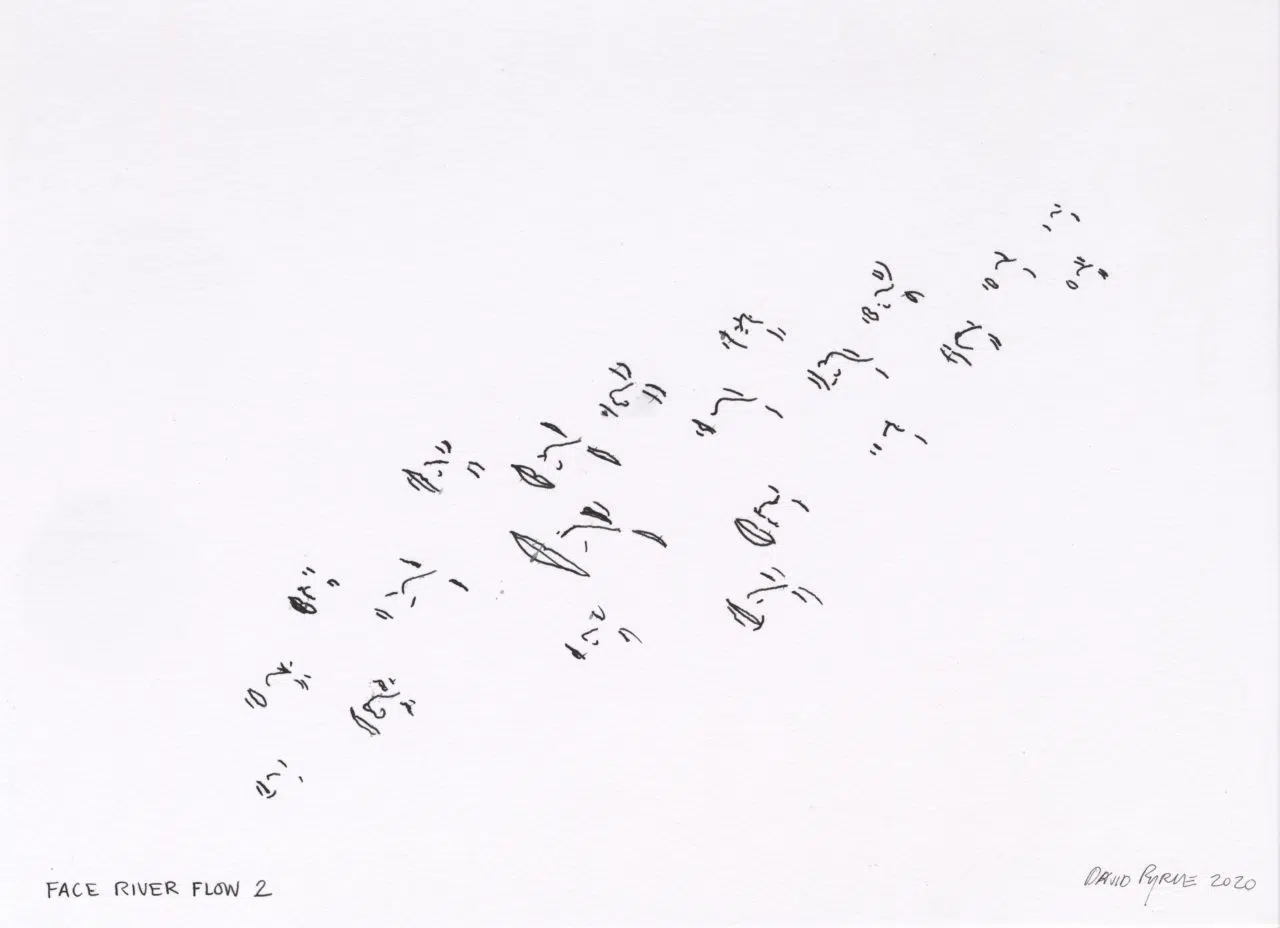 FACE RIVER FLOW 2
DAVID BYRNE 2020